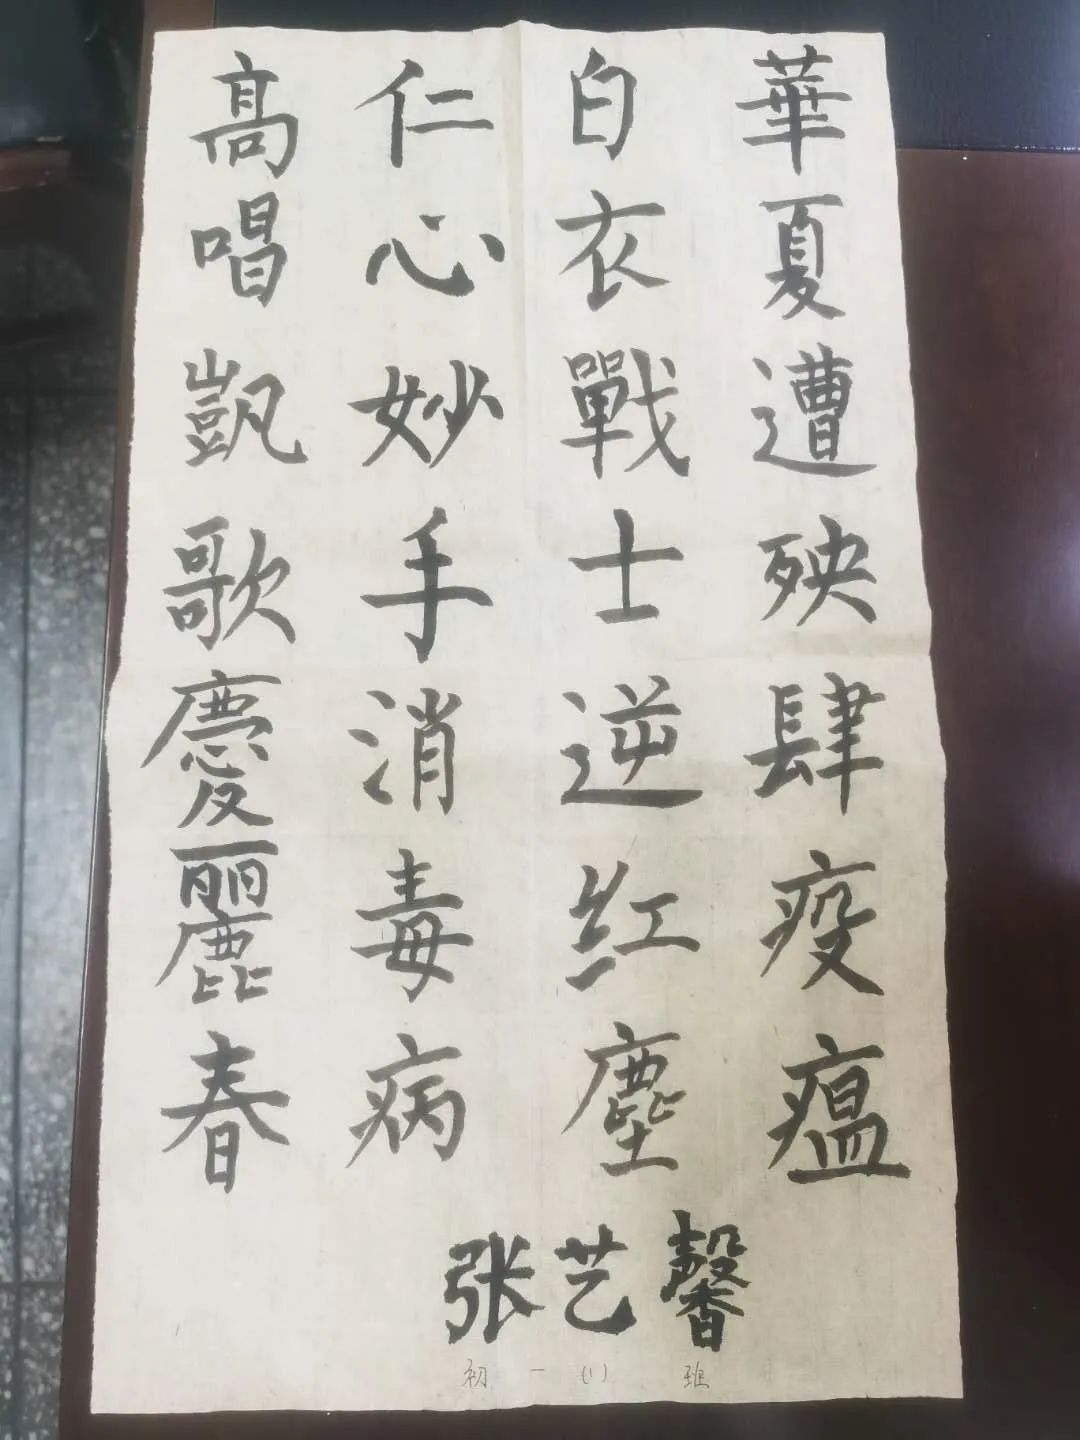 華夏遭殃肆疫瘟
白衣戰士逆红塵
仁心妙手消毒病
高唱凱歌慶麗春
张艺馨
初一(1)班